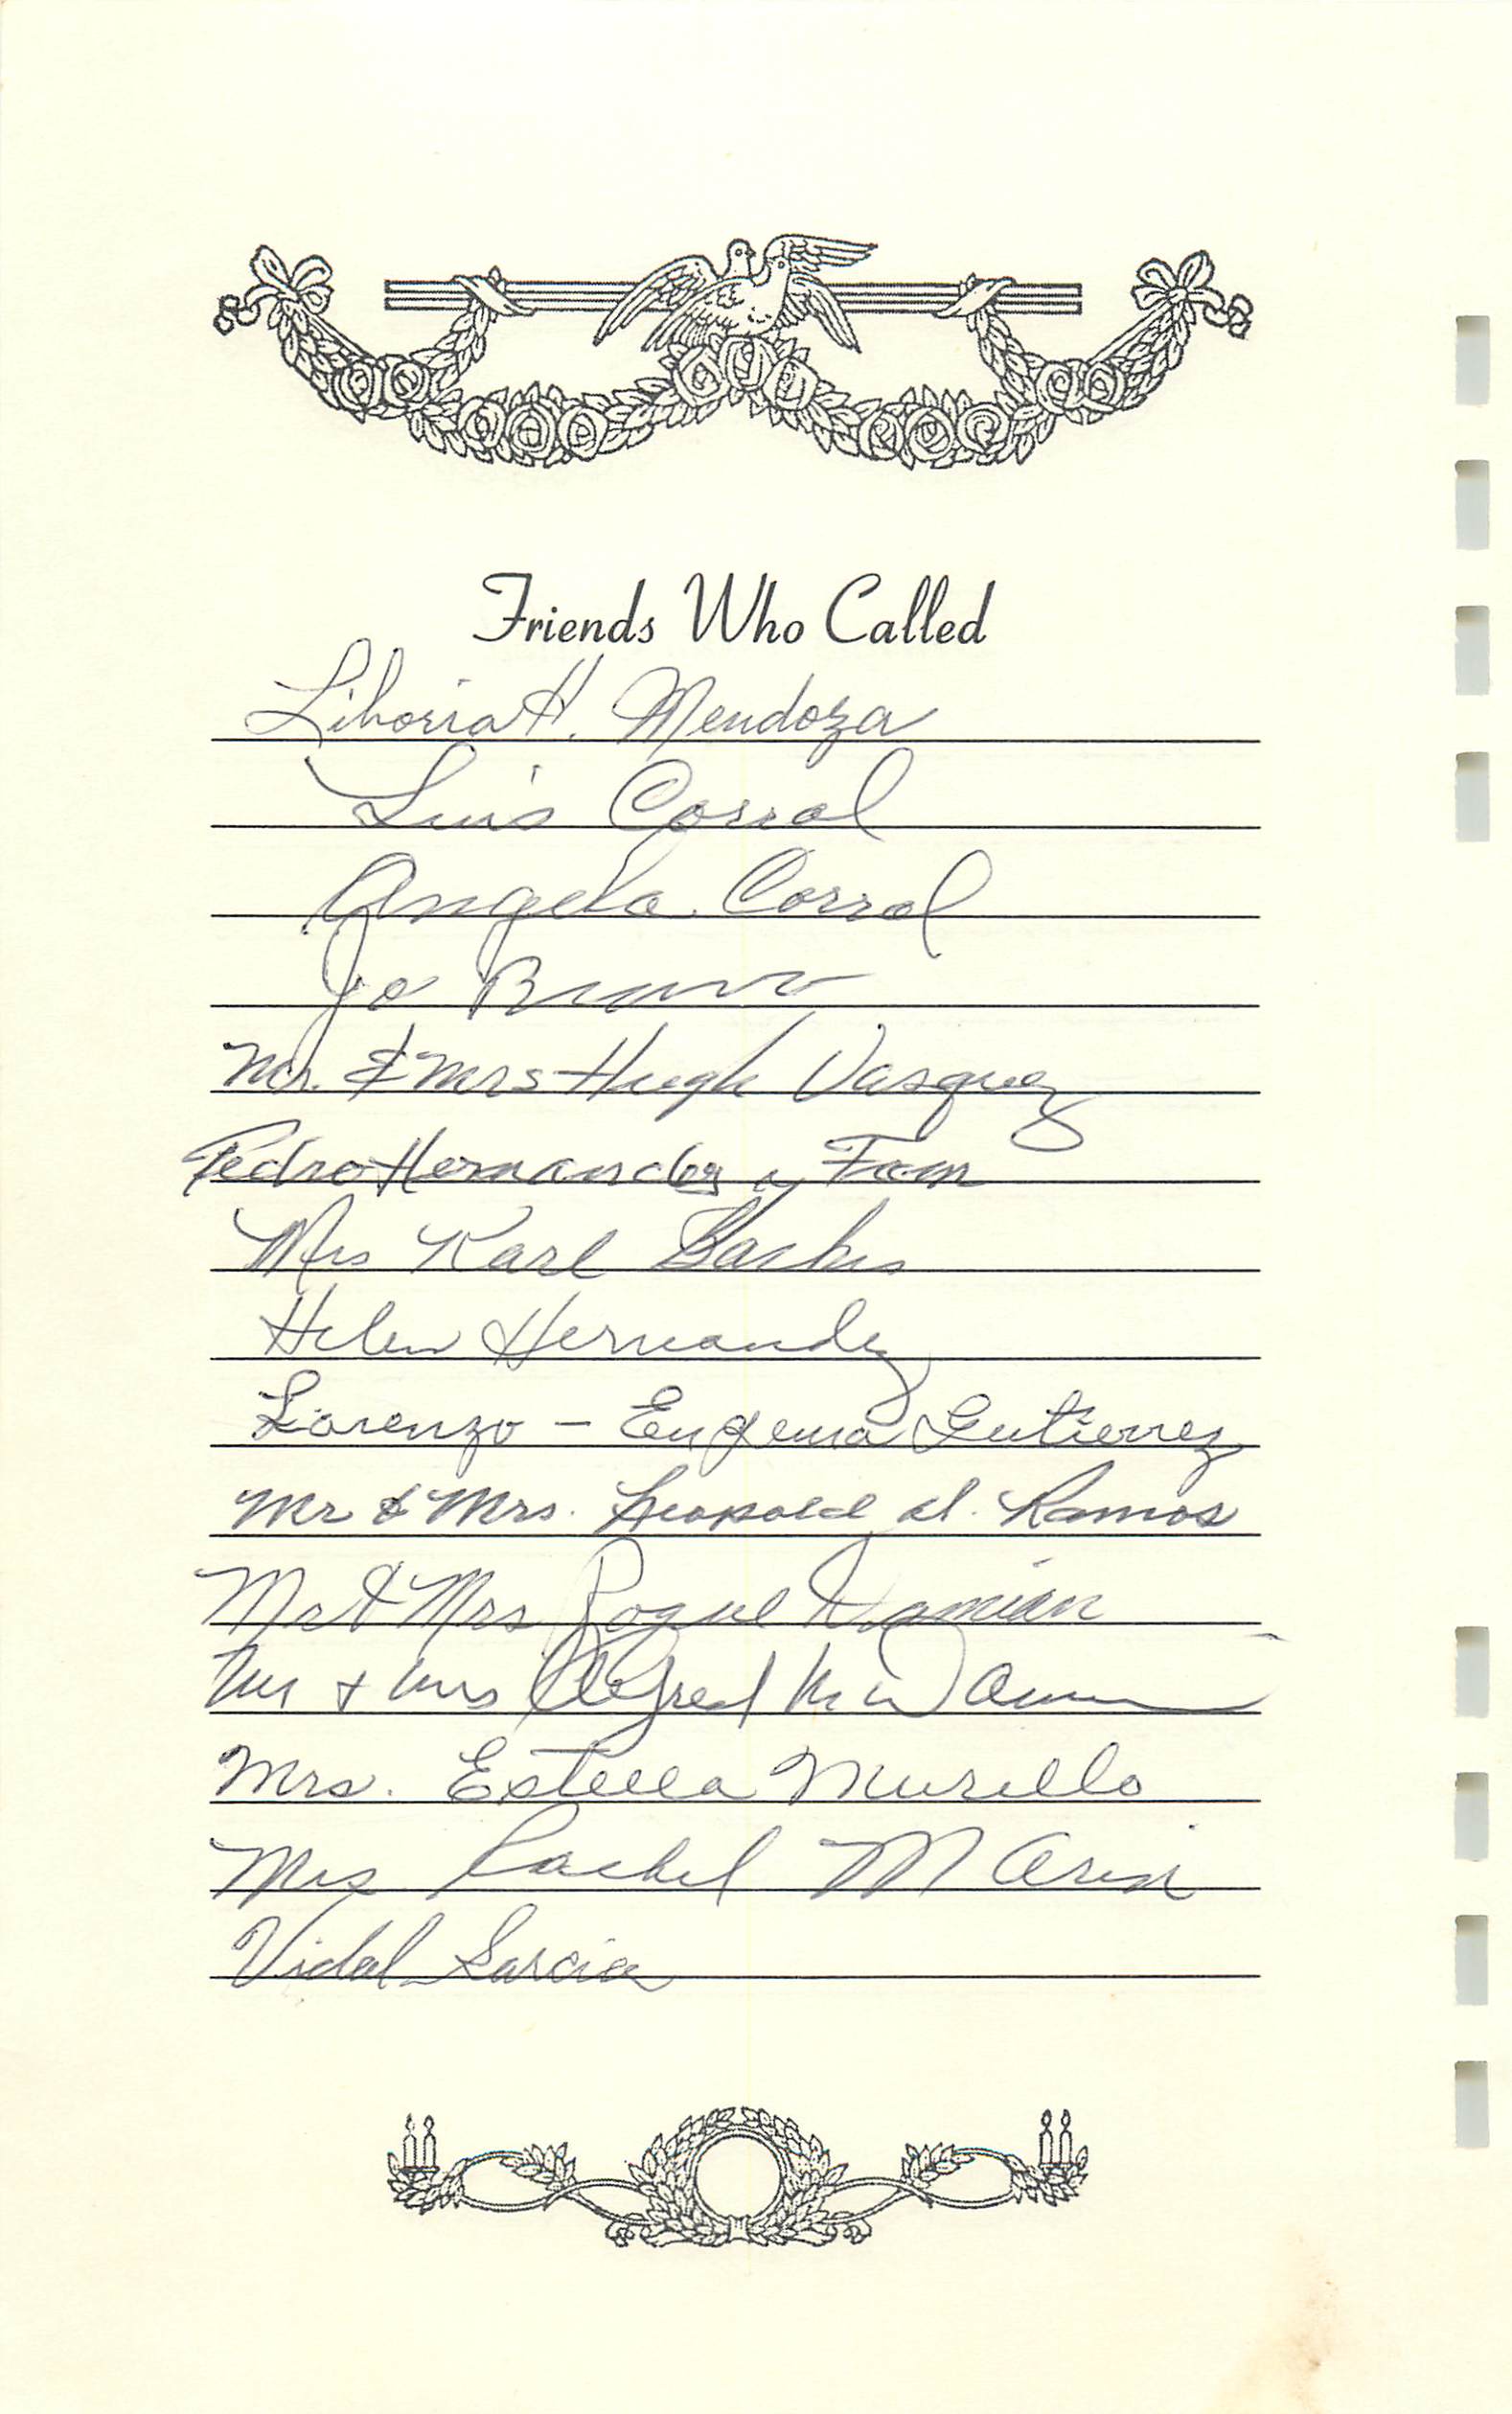 Friends Who Called
Liboria H. Mendoza
Luis Corral
Angela Corral
Jo Bravo
Mr. & Mrs Hugh Vasquez
Pedro Hernandez y Fam
Mrs Karl
Helen Hernandez
Lorenzo - Eugenia Gutierrez
Mr & Mrs. Leopold d. Ramos
Mr & Mrs Roque Damian
Mr & Mrs Alfred
Mrs. Estella Murillo
Mrs Rachel Marin
Vidal Garcia